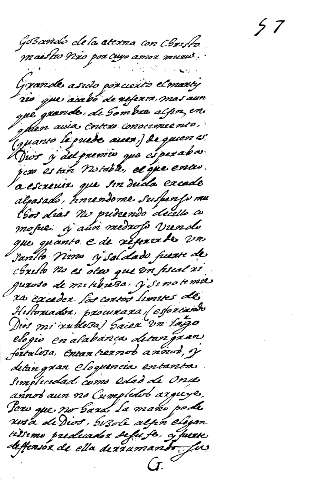 57
Gozando de la eterna con Christo
maestro nro por cuyo amor murio.
Grande a sido por cierto el marty
rio que acabo de referir, mas aun
que grande, de hombre al fin, en
quien avia entero conocimiento,
(quanto se puede aver) de quien es
Dios, y del premio que esperaba,
pero es tan notable, el que
a escrevir, que sin duda excede
al pasado, teniendome suspenso mu
chos dias no pudiendo
y aun medroso viendo
que quanto e de referir de un
santo Niño y soldado fuerte de
Christo no es otro que un fiscal ri
guroso de mi tibieza, y si no temie
ra exceder los cortos limites de
Historiador, procurara (esforzando
Dios mi rudeza) hacer un largo
elogio en alabanza de tan gran
fortaleza, en tan tiernos años, y
de tan gran eloquencia en tanta
simplicidad como edad de onze
años aun no cumplidos arguye,
Pero que no hara la mano pode
rosa de Dios, hizole al fin elegan
tissimo predicador de su fe, y fuerte
deffensor de ella derramando su
G.